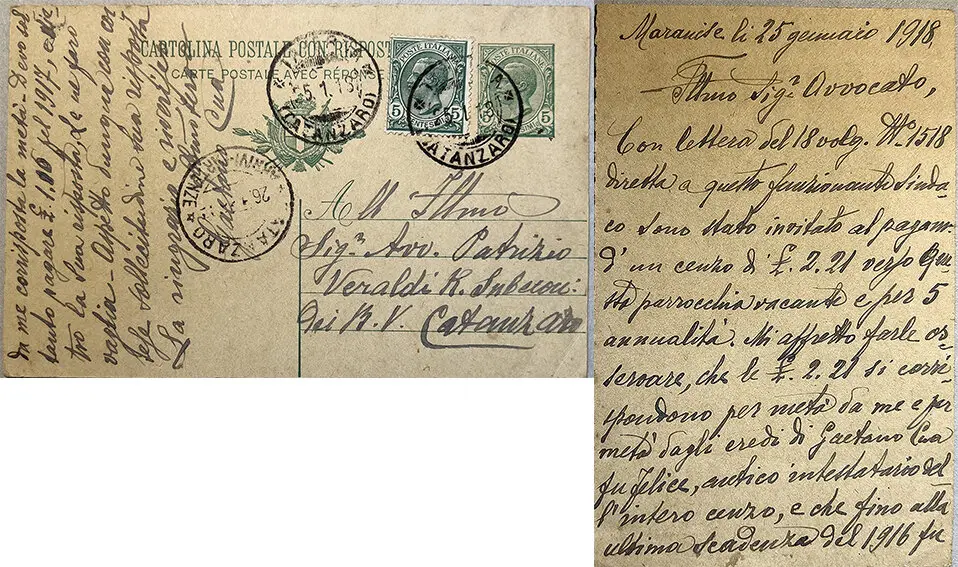 CARTOLINA POSTALE CON RISPOST
(CARTE POSTALE AVEC RÉPONSE
POSTE ITALIANE
5 CENTESIMI 5
5 5
(CATANZARO)
(CATANZARO)
CATANZARO
26.1
All Illmo
Sigr Avv. Patrizio
Veraldi R. Subecon:
dei B. V. Catanzaro
da me corrisposta la metà. Devo sol
tanto pagare £. 1.10 pel 1917, atten
La ringrazio e riverisco
Cua
Maranise li 25 gennaio 1918,
Illmo Sigr Avvocato,
Con lettera del 18 volg. No 1518
diretta a questo funzionante Sinda
co sono stato invitato al pagam-
d'un cenzo di £. 2.21 verso Que
sta parrocchia vacante e per 5
annualità. Mi affretto farle os-
servare, che le £. 2.21 si corri-
spondono per metà da me e per
metà dagli eredi di Gaetano Cua
fu Felice, antico intestatario del-
l'intero cenzo, e che fino alla
ultima scadenza del 1916 fu